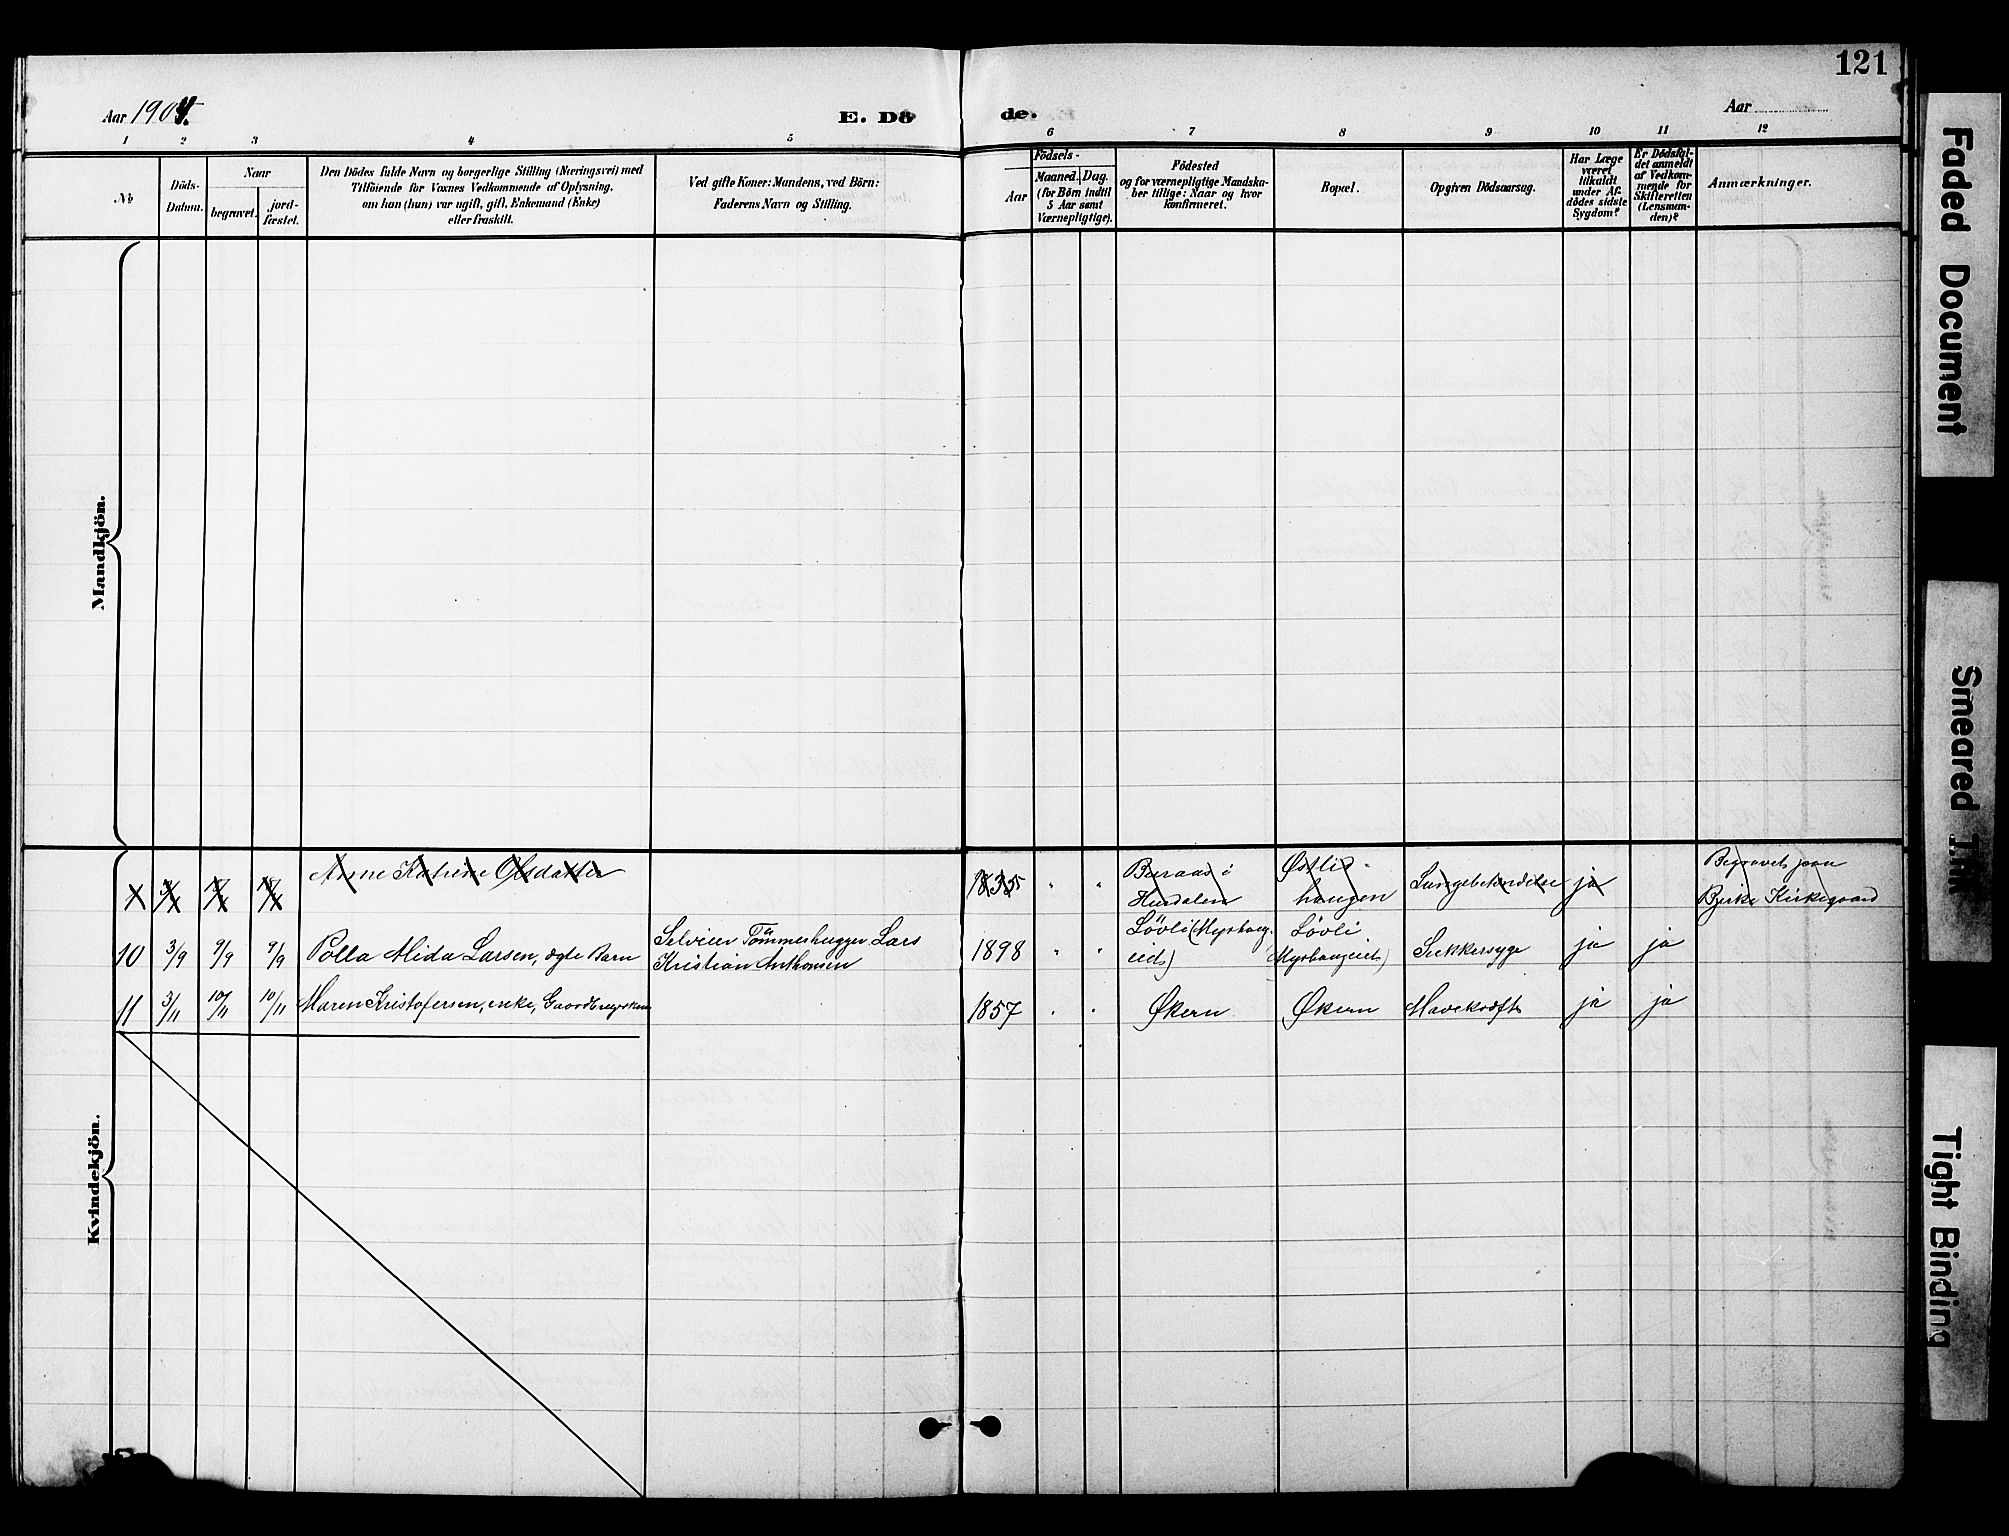 121
Aar 1904.
E. Dö
de.
Aar
1 2 3 4 5 6 7 8 9 10 11 12
No
Döds-
Datum.
Naar
begravet.
jord-
fæstet.
Den Dödes fulde Navn og borgerlige Stilling (Næringsvei) med
Tilföiende for Voxnes Vedkommende af Oplysning,
om han (hun) var ugift, gift, Enkemand (Enke)
eller fraskilt.
Ved gifte Koner: Mandens, ved Börn:
Faderens Navn og Stilling.
Födsels-
Aar
Maaned.
Dag.
(for Börn indtil
5 Aar samt
Værnepligtige).
Födested
og for værnepligtige Mandska-
ber tillige: Naar og hvor
konfirmeret.
Bopæl.
Opgiven Dödsaarsag.
Har Læge
været
tilkaldt
under Af-
dödes sidste
Sygdom?
Er Dödsfal-
det anmeldt
af Vedkom-
mende for
Skifteretten
(Lensman-
den)?
Anmærkninger.
Mandkjön.
Kvindekjön.
Anne Katrine Olsdatter 1835 " " Buraas i Hurdalen Østlie-haugen Lungebetændelse ja Begravet paa Bjerke Kirkegaard
10 3/9 9/9 9/9 Polla Alida Larsen, ægte Barn Selveier Tömmerhugger Lars Kristian Anthonsen 1898 " " Løvli (Myrhaug-eiet) Løvli (Myrhaugeiet) Sukkersyge ja ja
11 3/11 10/11 10/11 Maren Kristofersen, enke, Gaardbrugerske 1857 " " Økern Økern Mavekræft ja ja
Faded Document
Smeared Ink
Tight Binding